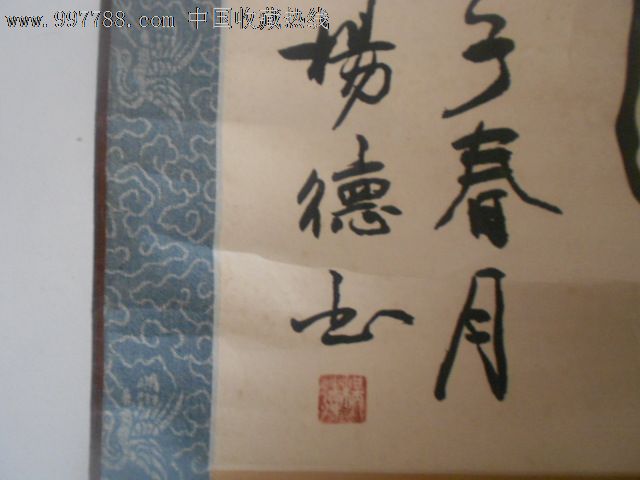 www.997788.com 中国收藏热线
子春月
楊德书